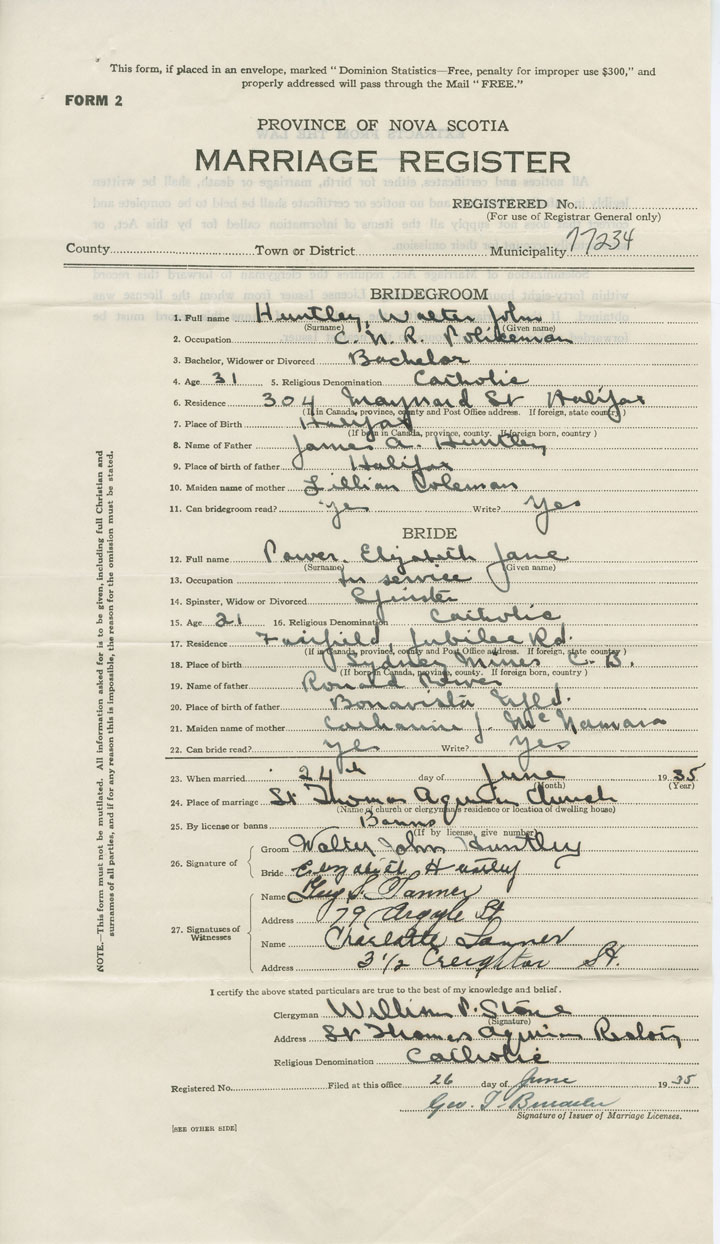 This form, if placed in an envelope, marked "Dominion Statistics—Free, penalty for improper use $300," and
properly addressed will pass through the Mail "FREE."
FORM 2
PROVINCE OF NOVA SCOTIA
MARRIAGE REGISTER
REGISTERED No.
(For use of Registrar General only)
County Town or District Municipality 77234
BRIDEGROOM
1. Full name Huntley, Walter John
(Surname) (Given name)
2. Occupation C. N. R. Policeman
3. Bachelor, Widower or Divorced Bachelor
4. Age 31 5. Religious Denomination Catholic
6. Residence 304 Maynard St Halifax
(If in Canada, province, county and Post Office address. If foreign, state country)
7. Place of Birth Halifax
(If born in Canada, province, county. If foreign born, country)
8. Name of Father James A. Huntley
9. Place of birth of father Halifax
10. Maiden name of mother Lillian Coleman
11. Can bridegroom read? yes Write? Yes
BRIDE
12. Full name Power, Elizabeth Jane
(Surname) (Given name)
13. Occupation In service
14. Spinster, Widow or Divorced Spinster
15. Age 21 16. Religious Denomination Catholic
17. Residence Fairfield Jubilee Rd.
(If in Canada, province, county and Post Office address. If foreign, state country)
18. Place of birth Sydney Mines C. B.
(If born in Canada, province, county. If foreign born, country)
19. Name of father Ronald Power
20. Place of birth of father Bonavista Nfld.
21. Maiden name of mother Catharine J. McNamara
22. Can bride read? yes Write? Yes
23. When married 24th day of June 1935
(Month) (Year)
24. Place of marriage St Thomas Aquinas Church
(Name of church or clergyman's residence or location of dwelling house)
25. By license or banns Banns
(If by license, give number)
26. Signature of
Groom Walter John Huntley
Bride Elizabeth Huntley
27. Signatures of Witnesses
Name Guy S. Tanner
Address 79 Argyle St
Name Charlotte Tanner
Address 3 1/2 Creighton St.
I certify the above stated particulars are true to the best of my knowledge and belief.
Clergyman William P. Stone
(Signature)
Address St Thomas Aquinas Rectory
Religious Denomination Catholic
Registered No. Filed at this office 26 day of June 1935
Geo. T.
Signature of Issuer of Marriage Licenses.
[SEE OTHER SIDE]
NOTE.—This form must not be mutilated. All information asked for is to be given, including full Christian and
surnames of all parties, and if for any reason this is impossible, the reason for the omission must be stated.